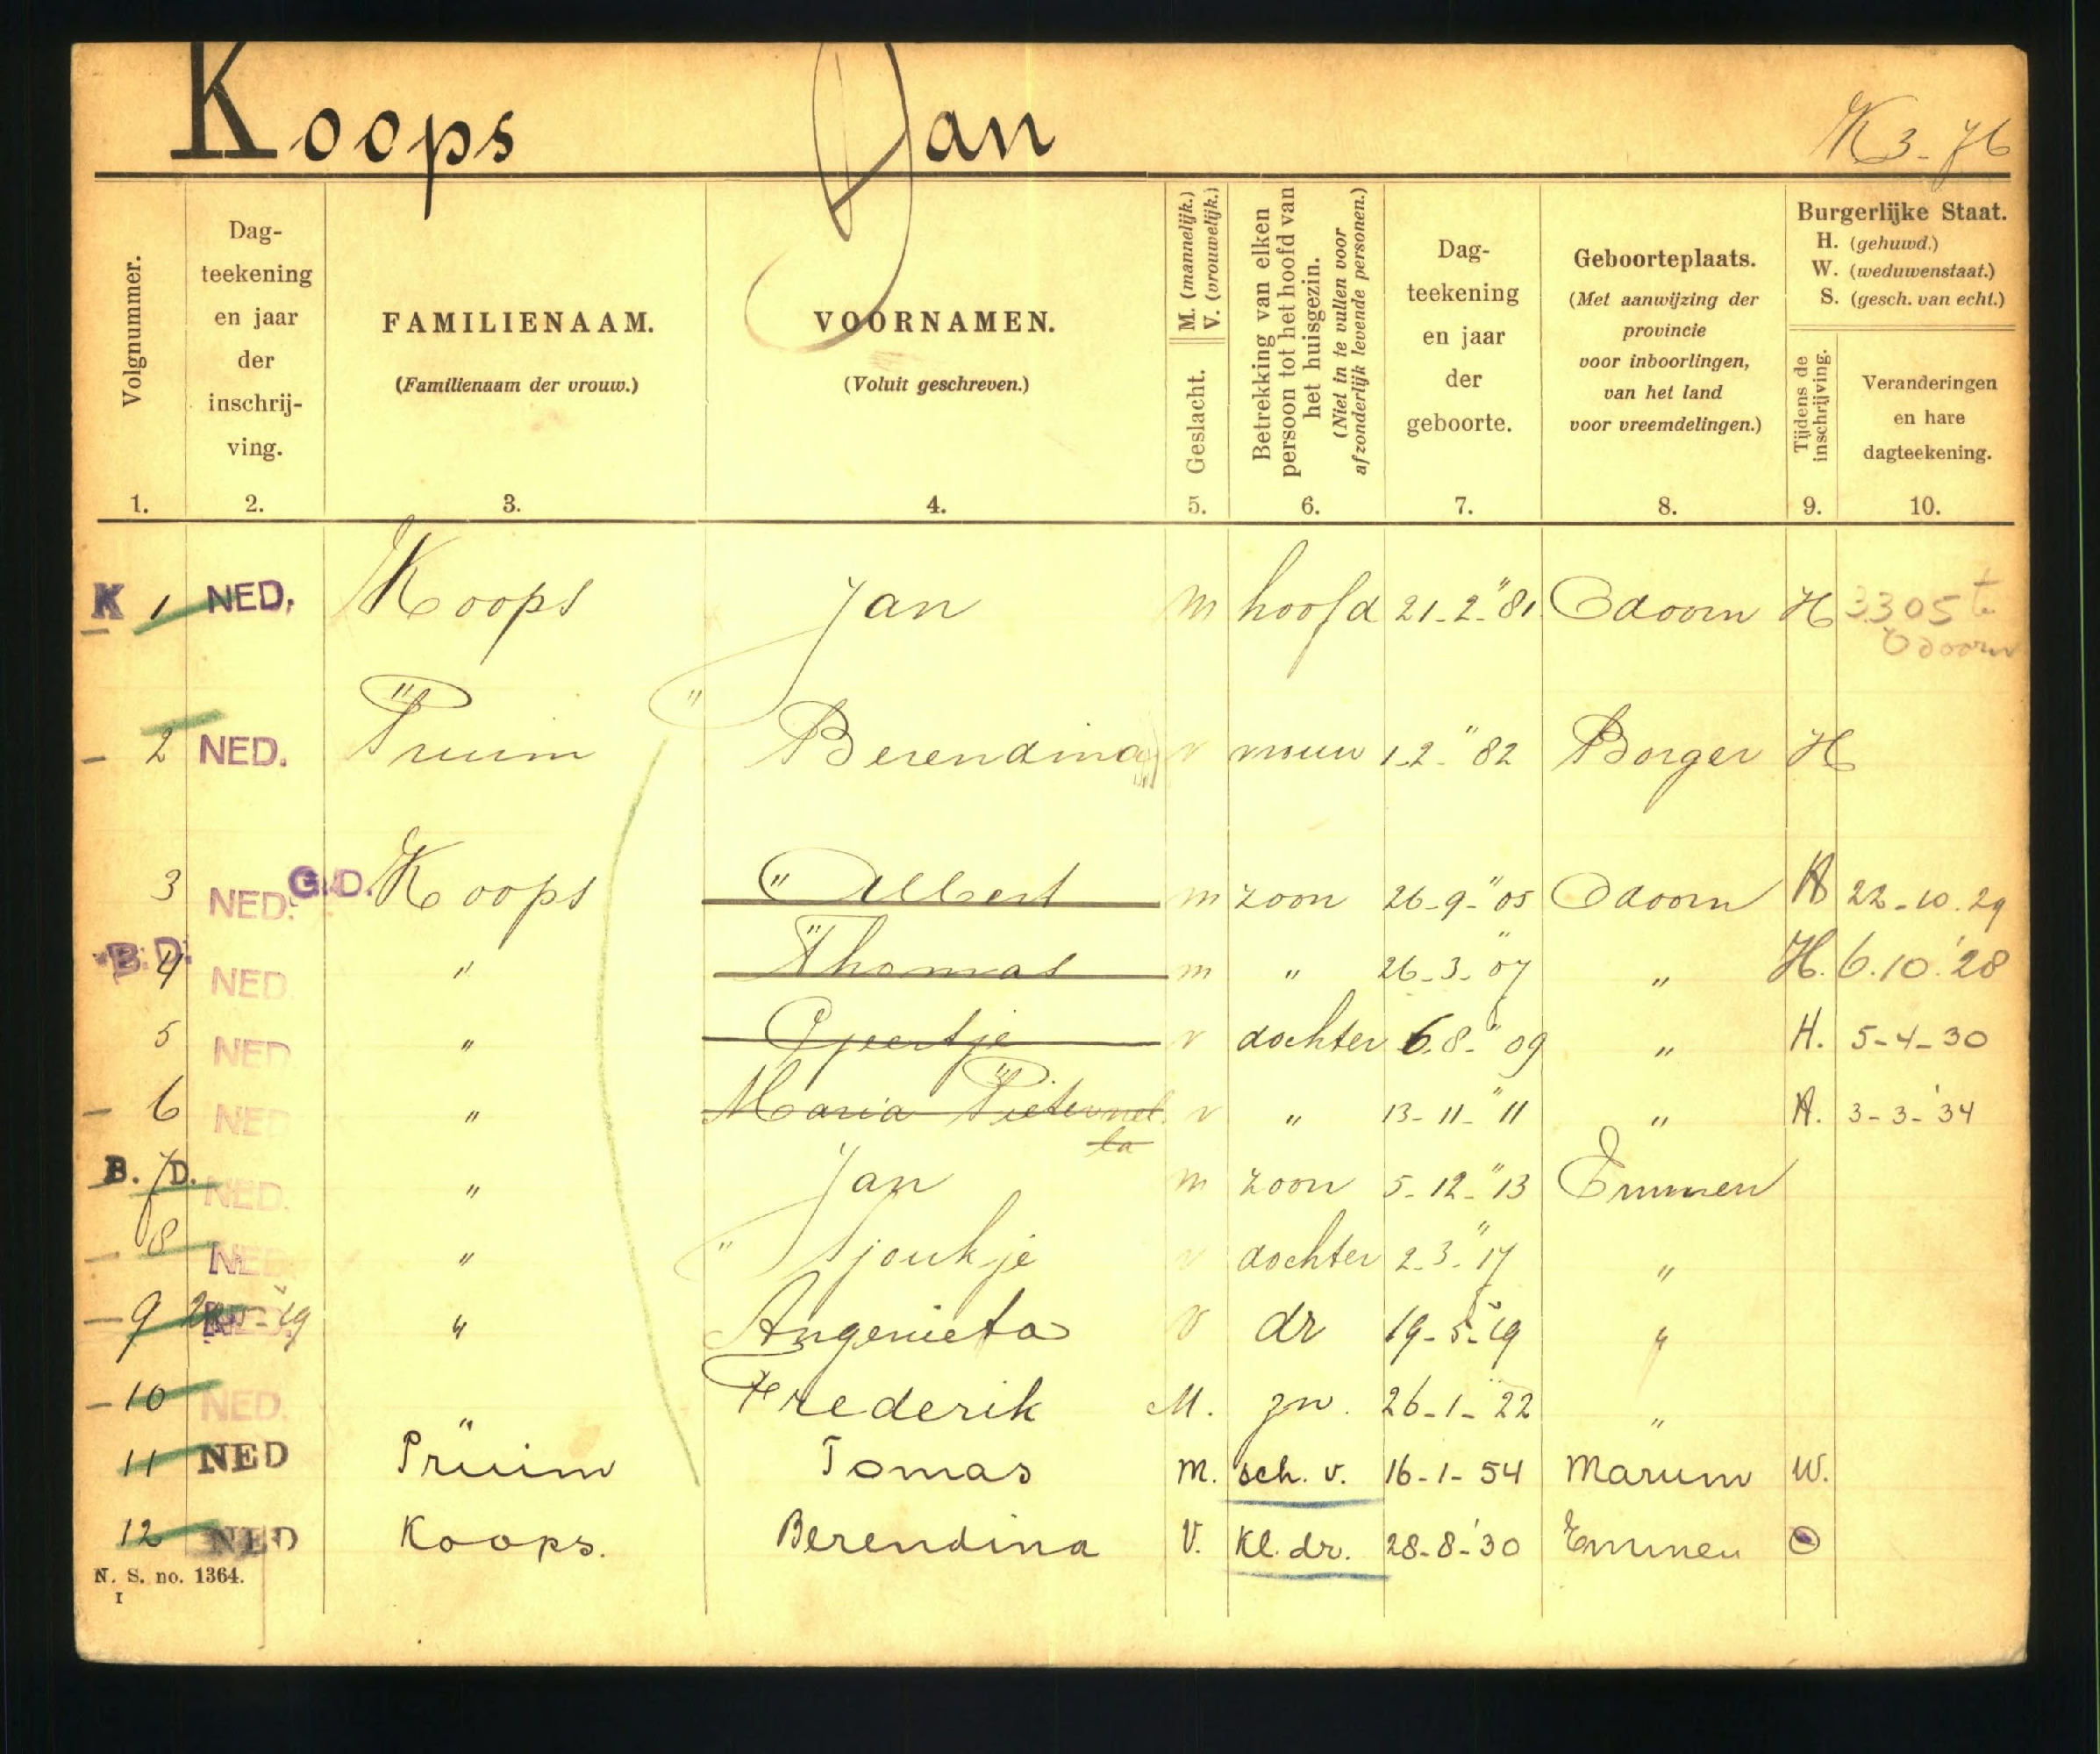 Koops Jan K3-76
Volgnummer.
Dag-
teekening
en jaar
der
inschrij-
ving.
FAMILIENAAM.
(Familienaam der vrouw.)
VOORNAMEN.
(Voluit geschreven.)
M. (mannelijk.)
V. (vrouwelijk.)
Geslacht.
Betrekking van elken
persoon tot het hoofd van
het huisgezin.
(Niet in te vullen voor
afzonderlijk levende personen.)
Dag-
teekening
en jaar
der
geboorte.
Geboorteplaats.
(Met aanwijzing der
provincie
voor inboorlingen,
van het land
voor vreemdelingen.)
Burgerlijke Staat.
H. (gehuwd.)
W. (weduwenstaat.)
S. (gesch. van echt.)
Tijdens de
inschrijving.
Veranderingen
en hare
dagteekening.
1. 2. 3. 4. 5. 6. 7. 8. 9. 10.
K 1 NED. Koops Jan m hoofd 21-2-"81 Odoorn H 3305 te
Odoorn
2 NED. Pruim Berendina v vrouw 1-2-"82 Borger H
3 NED. G.D. Koops Albert m zoon 26-9-"05 Odoorn H 22-10.29
B.D. 4 NED " Thomas m " 26-3-"07 " H. 6.10.'28
5 NED " Geertje v dochter 6.8-"09 " H. 5-4-30
6 NED " Maria Pieternel v " 13-11-"11 " H. 3-3-'34
la
B. 7 D. NED. " Jan m zoon 5-12-"13 Emmen
8 NED " Tjoukje v dochter 2-3-"17 "
9 NED. " Angenieta v dr 19-5-"19 "
10 NED. " Frederik M. zn. 26-1-"22 "
11 NED Prüim Tomas M. sch. v. 16-1-54 Marum W.
12 NED Koops. Berendina V. Kl. dr. 28-8-'30 Emmen O
N. S. no. 1364.
I